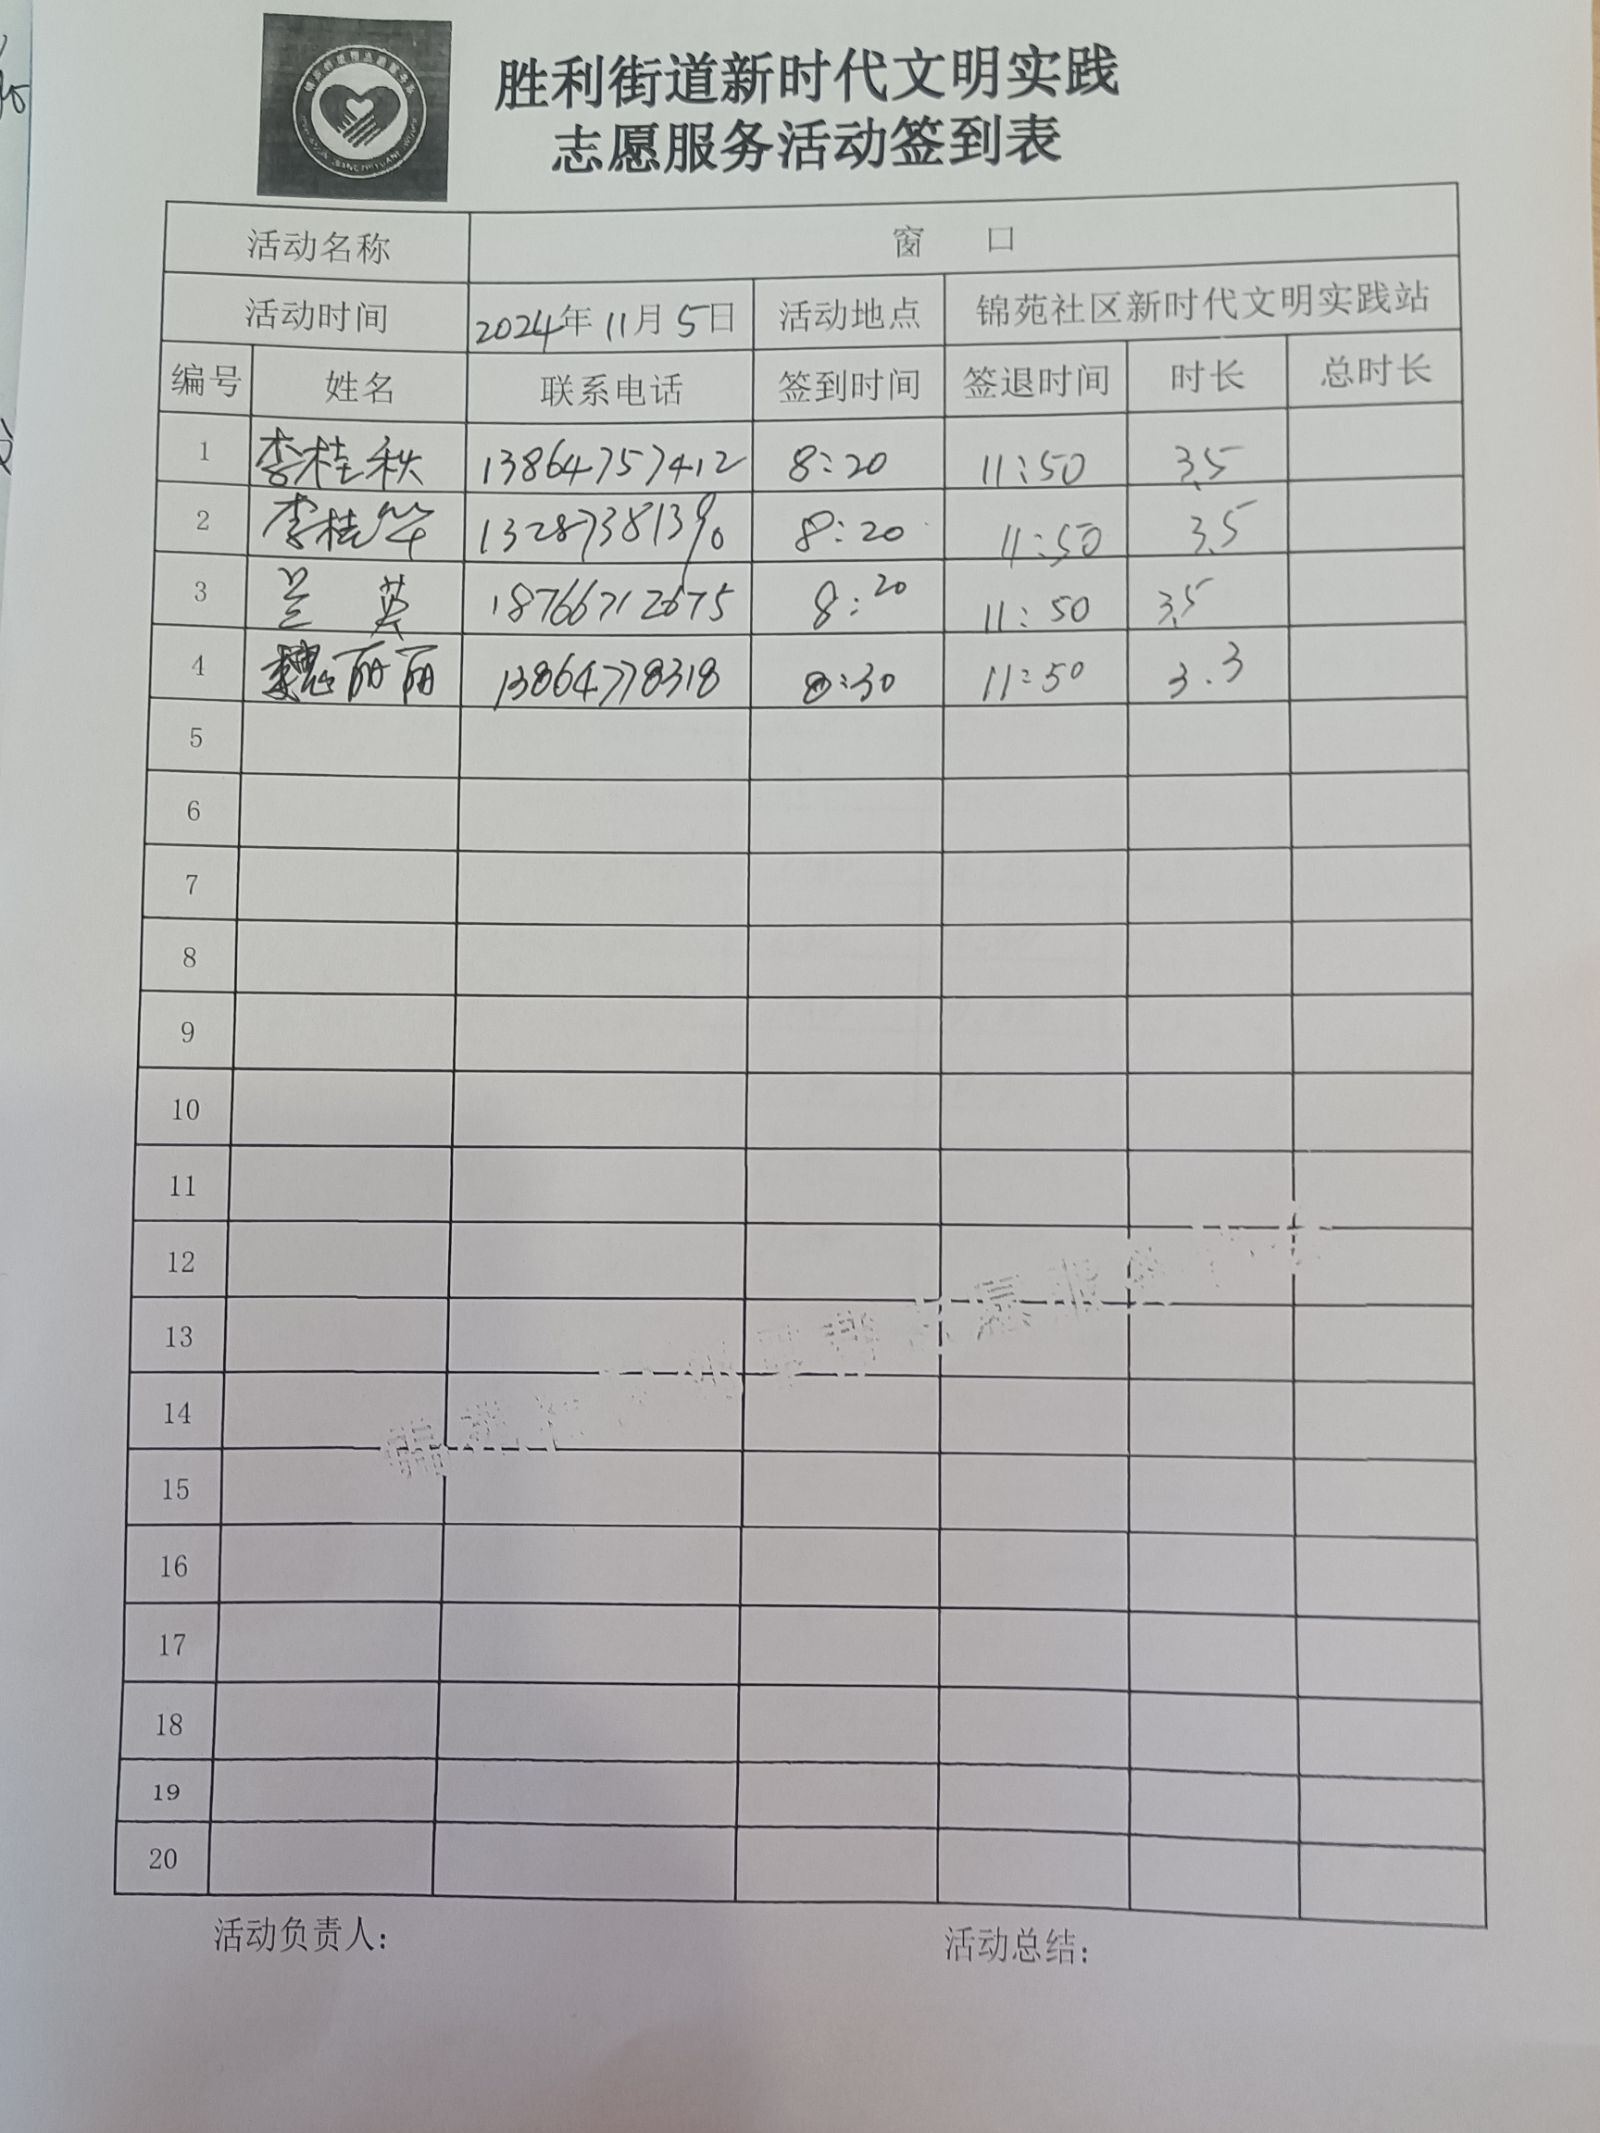 胜利街道新时代文明实践
志愿服务活动签到表
活动名称 窗 口
活动时间 2024年11月5日 活动地点 锦苑社区新时代文明实践站
编号 姓名 联系电话 签到时间 签退时间 时长 总时长
1 李桂秋 13864757412 8:20 11:50 3.5
2 李桂华 13287381390 8:20 11:50 3.5
3 兰英 18766712675 8:20 11:50 3.5
4 魏丽丽 13864778318 8:30 11:50 3.3
5
6
7
8
9
10
11
12
13
14
15
16
17
18
19
20
活动负责人: 活动总结: